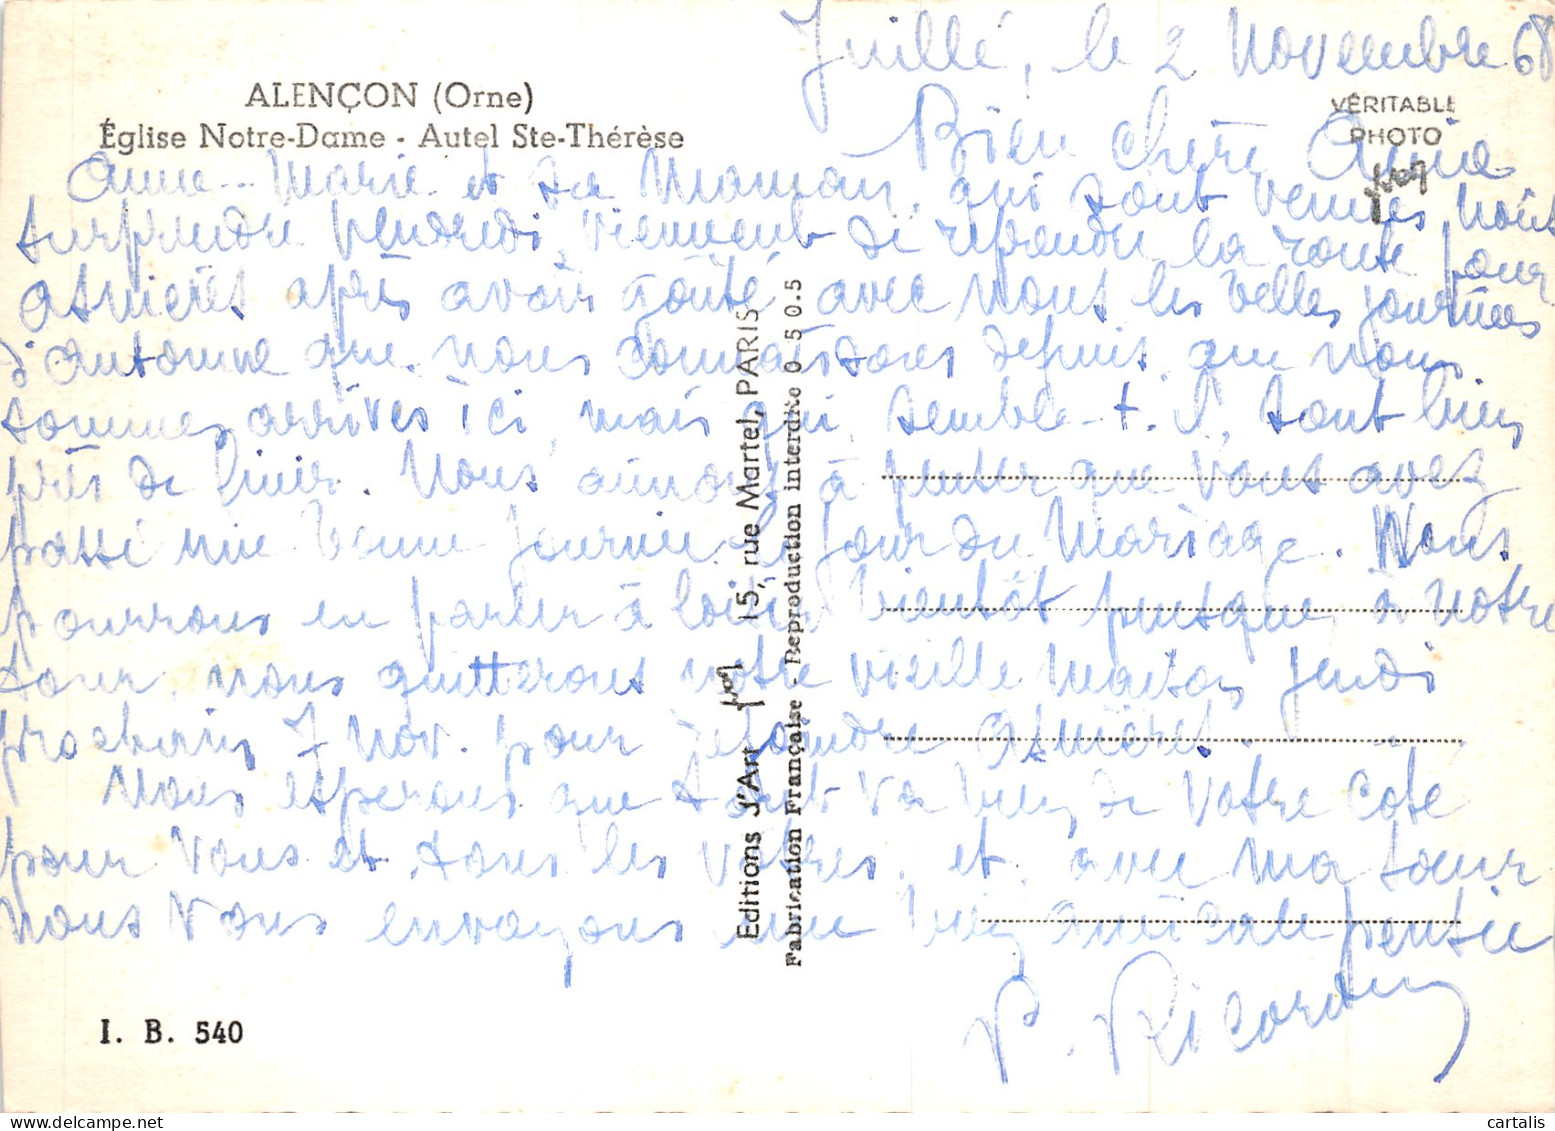 Juillé, le 2 Novembre 68
ALENÇON (Orne)
Église Notre-Dame - Autel Ste-Thérèse
VÉRITABLE
PHOTO
Yvon
Bien chère Amie
Anne-Marie et sa Maman, qui sont venues nous
surprendre vendredi, viennent de reprendre la route pour
Asnières après avoir goûté avec nous les belles journées
d'automne que nous connaissons depuis que nous
sommes arrivés ici, mais qui, semble-t-il, sont bien
près de finir. Nous aimons à penser que vous avez
passé une bonne journée le jour du Mariage. Nous
pourrons en parler à loisir bientôt puisque, à notre
tour, nous quitterons notre vieille maison jeudi
prochain 7 Nov. pour rejoindre Asnières.
Nous espérons que tout va bien de votre côté
pour vous et tous les vôtres, et, avec ma soeur
nous vous envoyons une bien amicale pensée
P. Ricordeau
Editions d'Art Yvon 15, rue Martel, PARIS
Fabrication Française - Reproduction interdite 0 5 0.5
I. B. 540
cartalis